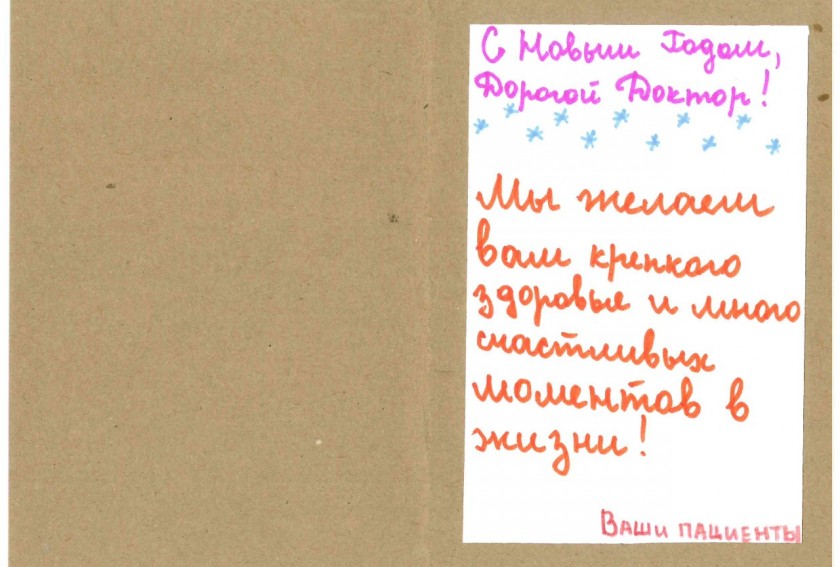 С Новым Годом,
Дорогой Доктор!
Мы желаем
вам крепкого
здоровья и много
счастливых
моментов в
жизни!
Ваши пациенты